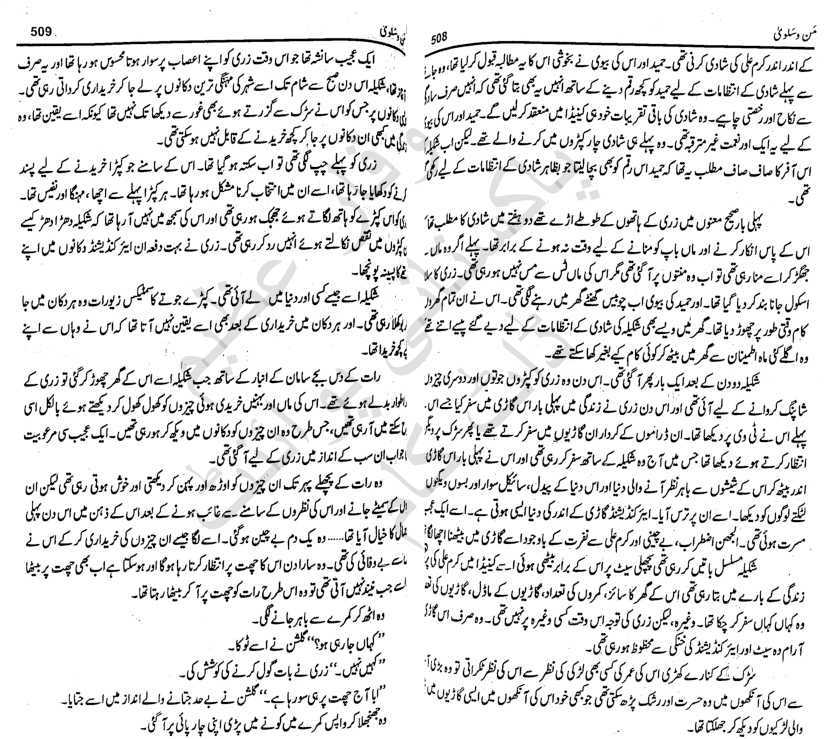 من و سلویٰ
508
کے اندر اندر کرم علی کی شادی کرنی تھی۔ حمید اور اس کی بیوی نے بخوشی اس کا یہ مطالبہ قبول کر لیا تھا، وہ جانے
سے پہلے شادی کے انتظامات کے لیے حمید کو کچھ رقم دینے کے ساتھ انہیں یہ بھی بتا گئی تھی کہ انہیں صرف سادگی
سے نکاح اور رخصتی چاہیے۔ وہ شادی کی باقی تقریبات خود ہی کینیڈا میں منعقد کر لیں گے۔ حمید اور اس کی بیوی
کے لیے یہ ایک اور نعمت غیر مترقبہ تھی۔ وہ پہلے ہی شادی چار کپڑوں میں کرنے والے تھے۔ لیکن اب شکیلہ کی
اس آفر کا صاف صاف مطلب یہ تھا کہ حمید اس رقم کو بھی بچا لیتا جو بظاہر شادی کے انتظامات کے لیے رکھی گئی
تھی۔
پہلی بار صحیح معنوں میں زری کے ہاتھوں کے طوطے اڑے تھے دو ہفتے میں شادی کا مطلب تھا
اس کے پاس انکار کرنے اور ماں باپ کو منانے کے لیے وقت نہ ہونے کے برابر تھا۔ پہلے اگر وہ ماں سے
جھگڑ کر اسے منا رہی تھی تو اب وہ منتوں پر آ گئی تھی مگر اس کی ماں ٹس سے مس نہیں ہو رہی تھی۔ زری کا سلائی
اسکول جانا بند کر دیا گیا تھا۔ اور حمید کی بیوی اب چوبیس گھنٹے گھر میں رہنے لگی تھی۔ اس نے ان تمام گھروں کا
کام وقتی طور پر چھوڑ دیا تھا۔ گھر میں ویسے بھی شکیلہ کی شادی کے انتظامات کے لیے دیے گئے پیسے اتنے تھے کہ
وہ اگلے کئی ماہ اطمینان سے گھر میں بیٹھ کر کوئی کام کیے بغیر کھا سکتے تھے۔
شکیلہ دو دن کے بعد ایک بار پھر آ گئی تھی۔ اس دن وہ زری کو کپڑوں جوتوں اور دوسری چیزوں کی
شاپنگ کروانے کے لیے آئی تھی اور اس دن زری نے زندگی میں پہلی بار اس گاڑی میں سفر کیا جسے اس نے
پہلے اس نے ٹی وی پر دیکھا تھا۔ ان ڈراموں کے کردار ان گاڑیوں میں سفر کرتے تھے یا پھر سڑک پر ویگن کا
انتظار کرتے ہوئے دیکھا تھا جس میں آج وہ شکیلہ کے ساتھ سفر کر رہی تھی۔ اور اس نے پہلی بار اس گاڑی کے
اندر بیٹھ کر اس کے شیشوں سے باہر نظر آنے والی دنیا اور اس دنیا کے پیدل، سائیکل سوار اور بسوں ویگنوں سے
لٹکتے لوگوں کو دیکھا۔ اسے ان پر ترس آیا۔ ایئرکنڈیشنڈ گاڑی کے اندر کی دنیا ایسی ہوتی ہے۔ اسے ایک عجیب سی
مسرت ہوئی تھی۔ الجھن اضطراب، بے چینی اور کرم علی سے نفرت کے باوجود اسے گاڑی میں بیٹھنا اچھا لگا تھا۔
شکیلہ مسلسل باتیں کر رہی تھی پچھلی سیٹ پر اس کے برابر بیٹھی ہوئی اسے کینیڈا میں کرم علی کی
زندگی کے بارے میں بتا رہی تھی اس کے گھر کا سائز، کمروں کی تعداد، گاڑیوں کے ماڈل، گاڑیوں کی تعداد
وہ کہاں کہاں سفر کر چکا تھا۔ وغیرہ، لیکن زری کی توجہ اس وقت کسی وغیرہ پر نہیں تھی۔ وہ صرف اس گاڑی کی
آرام دہ سیٹ اور ایئرکنڈیشنڈ کی خنکی سے محظوظ ہو رہی تھی۔
سڑک کے کنارے کھڑی اس کی عمر کی کسی بھی لڑکی کی نظر سے اس کی نظر ٹکراتی تو وہ بڑی آسانی
سے اس کی آنکھوں میں وہ حسرت اور رشک پڑھ سکتی تھی جو کبھی خود اس کی آنکھوں میں ایسی گاڑیوں میں بیٹھنے
والی لڑکیوں کو دیکھ کر جھلکتا تھا۔
من و سلویٰ
509
ایک عجیب سا نشہ تھا جو اس وقت زری کو اپنے اعصاب پر سوار ہوتا محسوس ہو رہا تھا اور یہ صرف
آغاز تھا، شکیلہ اس دن صبح سے شام تک اسے شہر کی مہنگی ترین دکانوں پر لے جا کر خریداری کرواتی رہی تھی۔
ان دکانوں پر جس کو اس نے سڑک سے گزرتے ہوئے بھی غور سے دیکھا تک نہیں تھا کیونکہ اسے یقین تھا، وہ
زندگی میں کبھی ان دکانوں پر جا کر کچھ خریدنے کے قابل نہیں ہو سکتی تھی۔
زری کو پہلے چپ لگی تھی تو اب سکتہ ہو گیا تھا۔ اس کے سامنے جو کپڑا خریدنے کے لیے پسند
کرنے کو دکھایا جا رہا تھا، اسے ان میں انتخاب کرنا مشکل ہو رہا تھا۔ ہر کپڑا پہلے سے اچھا، مہنگا اور نفیس تھا۔
زری کو اس کپڑے کو ہاتھ لگاتے ہوئے جھجک ہو رہی تھی اور اس کی سمجھ میں نہیں آ رہا تھا کہ شکیلہ دھڑا دھڑ کیسے
کپڑوں میں نقص نکالتے ہوئے انہیں رد کر رہی تھی۔ زری نے بہت دفعہ ان ایئرکنڈیشنڈ دکانوں میں اپنے
ماتھے کا پسینہ پونچھا۔
شکیلہ اسے جیسے کسی اور دنیا میں لے آئی تھی۔ کپڑے جوتے کاسمیٹکس زیورات وہ ہر دکان میں جا
کر بوکھلا رہی تھی۔ اور ہر دکان میں خریداری کے بعد بھی اسے یقین نہیں آتا تھا کہ اس نے وہاں سے اپنے
لیے کچھ خریدا تھا۔
رات کے دس بجے سامان کے انبار کے ساتھ جب شکیلہ اسے اس کے گھر چھوڑ کر گئی تو زری کے
اطوار بدلے ہوئے تھے۔ اس کی ماں اور بہنیں خریدی ہوئی چیزوں کو کھول کھول کر دیکھتے ہوئے بالکل اسی
سکتے میں آ رہی تھیں، جس طرح وہ ان چیزوں کو دکانوں میں دیکھ کر ہو رہی تھی۔ ایک عجیب سی مرعوبیت
اب ان سب کے انداز میں زری کے لیے آ گئی تھی۔
وہ رات کے پچھلے پہر تک ان چیزوں کو اوڑھ اور پہن کر دیکھتی اور خوش ہوتی رہی تھی لیکن ان
کے سمیٹے جانے اور اس کی نظروں کے سامنے سے غائب ہونے کے بعد اس کے ذہن میں اس دن پہلی
بار جمال کا خیال آیا تھا...... وہ یک دم بے چین ہو گئی۔ اسے لگا جیسے ان چیزوں کی خریداری کر کے اس نے
جمال سے بے وفائی کی تھی۔ وہ سارا دن اس کا چھت پر انتظار کرتا رہا ہو گا اور ہو سکتا ہے اب بھی چھت پر بیٹھا
ہو۔ اسے جب نیند نہیں آتی تھی تو وہ اس طرح رات کو چھت پر آ کر بیٹھا رہتا تھا۔
وہ اٹھ کر کمرے سے باہر جانے لگی۔
”کہاں جا رہی ہو؟“ گلشن نے اسے ٹوکا۔
”کہیں نہیں۔“ زری نے بات گول کرنے کی کوشش کی۔
”ابا آج چھت پر ہی سو رہا ہے۔“ گلشن نے بے حد جتانے والے انداز میں اسے جتایا۔
وہ جھنجھلا کر واپس کمرے میں کونے میں پڑی اپنی چارپائی پر آ گئی۔